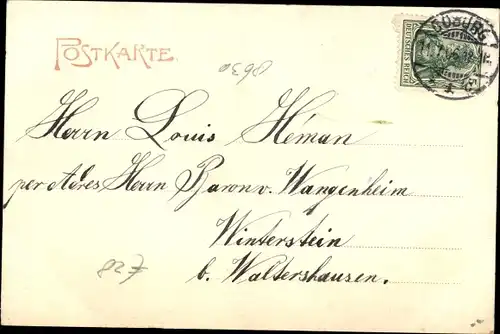 POSTKARTE.
COBURG
DEUTSCHES REICH
8630
Herrn Louis Héman
per Adres Herrn Baron v. Wangenheim
Winterstein
b. Waltershausen.
827